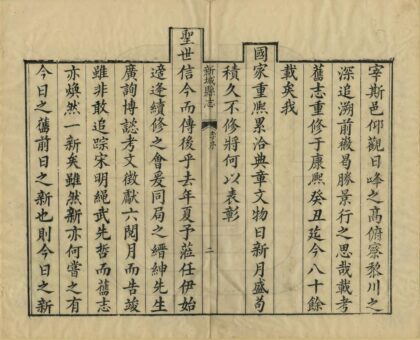 宰斯邑仰觀日峰之高俯察黎川之
深追溯前徽曷勝景行之思哉載考
舊志重修于康熙癸丑迄今八十餘
載矣我
國家重熙累洽典章文物日新月盛苟
積久不修將何以表彰
新城縣志
二
聖世信今而傳後乎去年夏予蒞任伊始
適逢續修之會爰同局之縉紳先生
廣詢博考文徵獻六閱月而告竣
雖非敢追踪宋明繩武先哲而舊志
亦煥然一新矣雖然新亦何嘗之有
今日之舊前日之新也則今日之新